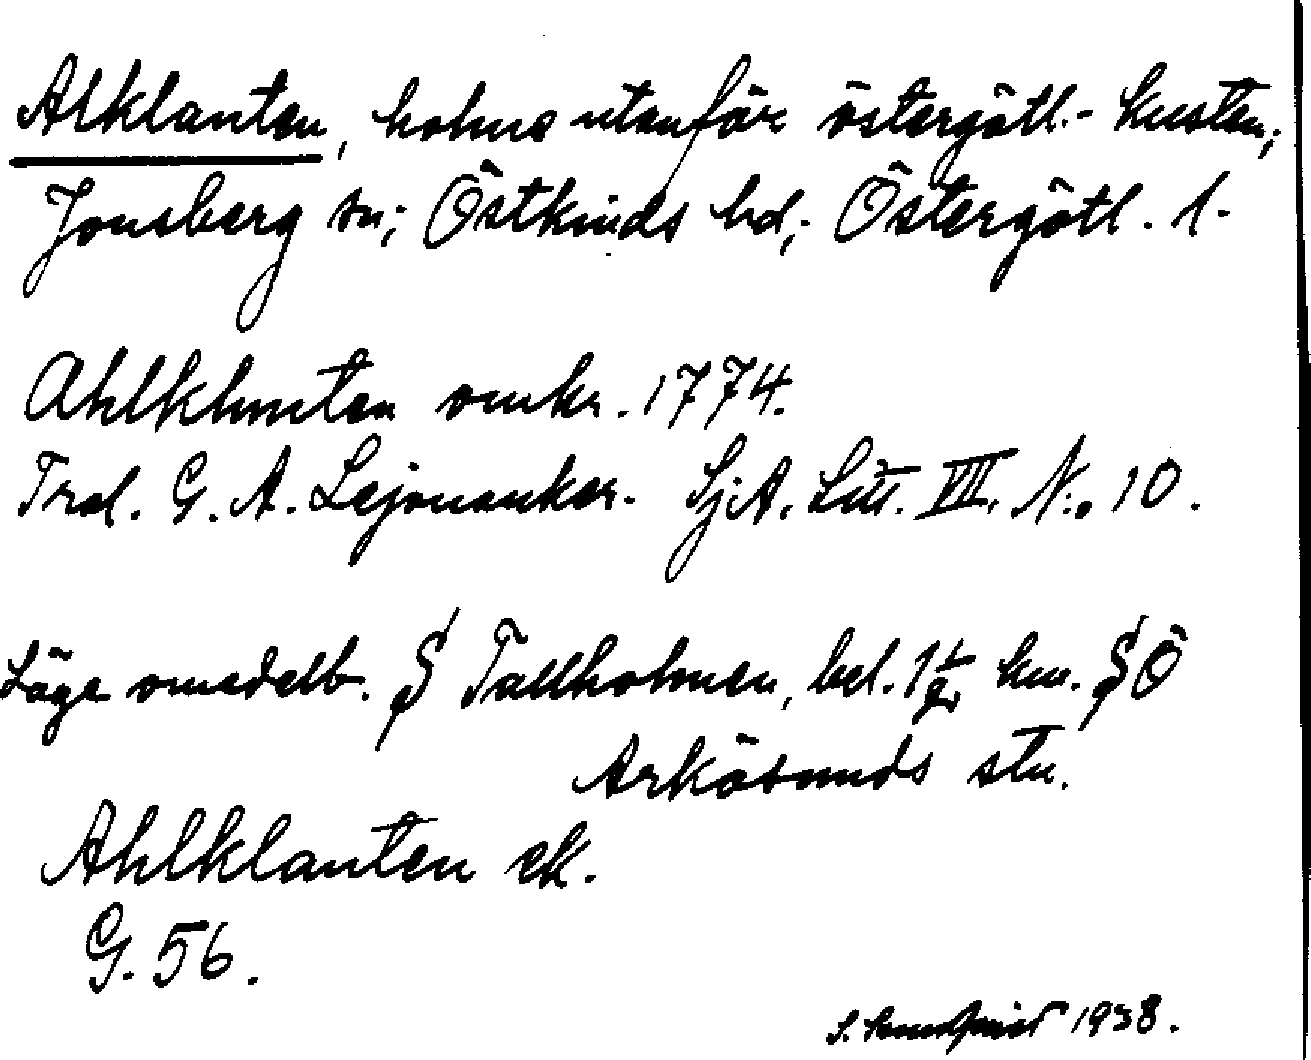 Alklanten, holme utanför östergötl.- kusten;
Jonsberg sn; Östkinds hd; Östergötl. l.
Ahlklunten omkr. 1774.
Trol. G. A. Lejonanker. SjA. Litt. VII. N:o 10.
Läge omedelb. S Tallholmen, bel. 1 1/2 km. SÖ
Arkösunds stn.
Ahlklanten ek.
G. 56.
S. 1938.